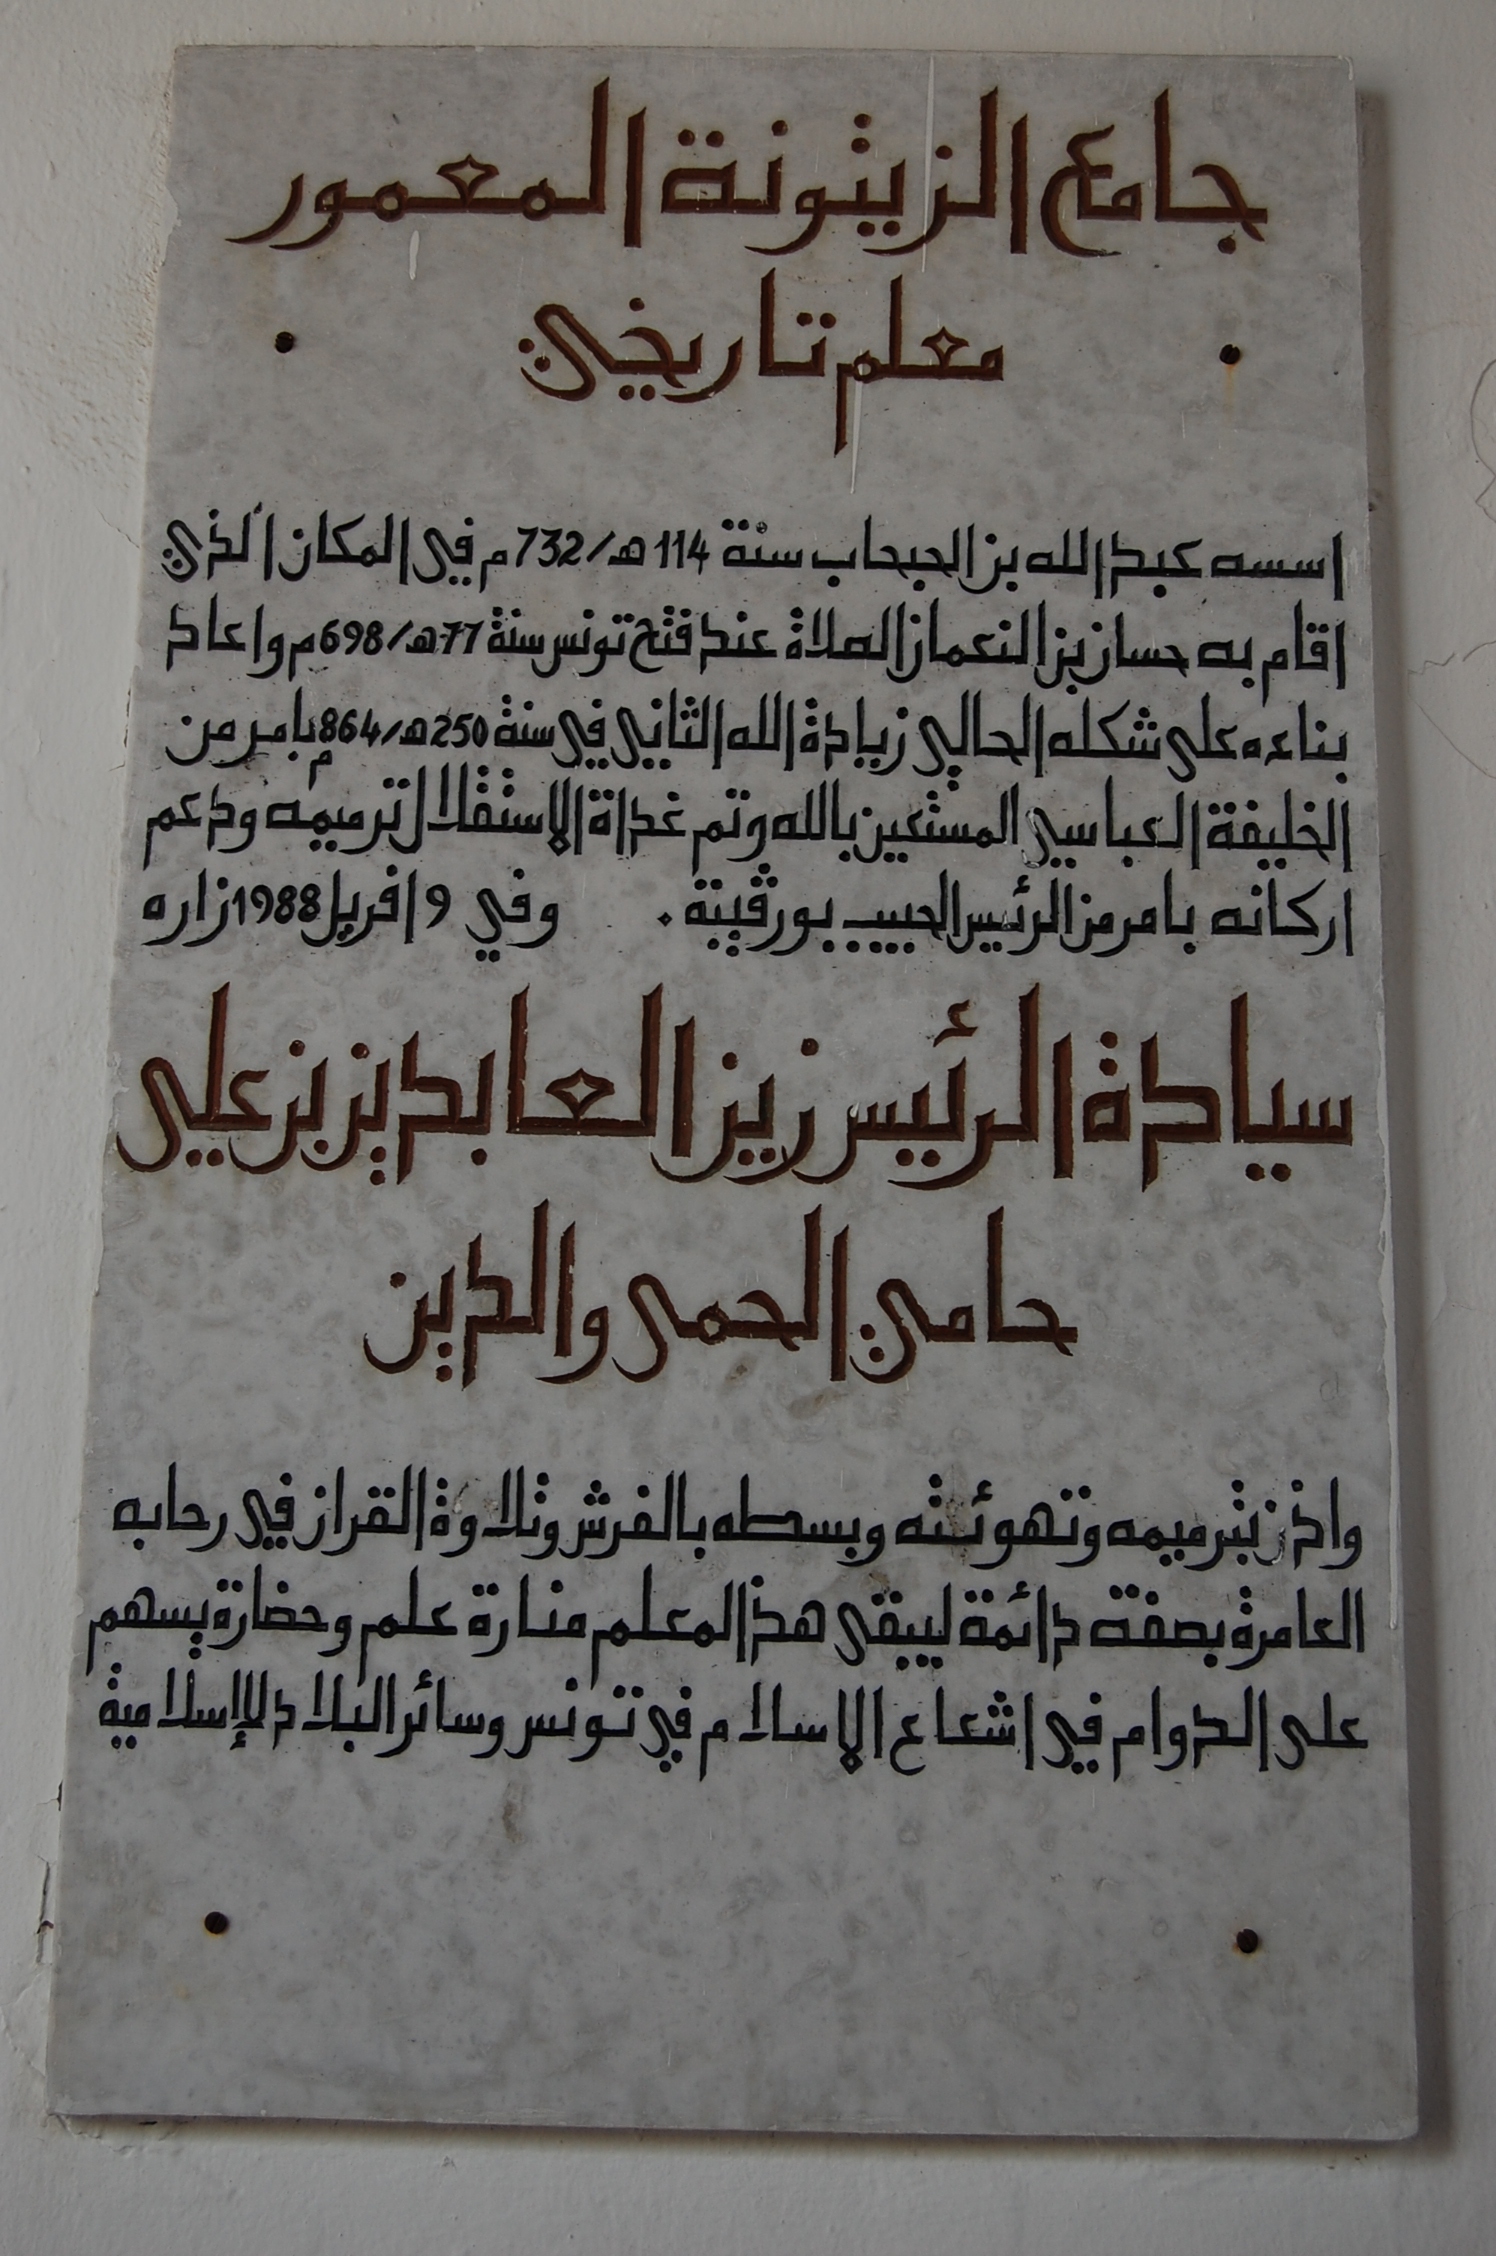 جامع الزيتونة المعمور
معلم تاريخي
اسسه عبد الله بن الحبحاب سنة 114 هـ/732 م في المكان الذي
اقام به حسان بن النعمان الصلاة عند فتح تونس سنة 77هـ/698م واعاد
بناءه على شكله الحالي زيادة الله الثاني في سنة 250هـ/864م بامر من
الخليفة العباسي المستعين بالله وتم غداة الاستقلال ترميمه ودعم
اركانه بامر من الرئيس الحبيب بورقيبة . وفي 9 افريل 1988 زاره
سيادة الرئيس زين العابدين بن علي
حامي الحمى والدين
واذن بترميمه وتهوئته وبسطه بالفرش وتلاوة القران في رحابه
العامرة بصفة دائمة ليبقى هذا المعلم منارة علم وحضارة يسهم
على الدوام في اشعاع الاسلام في تونس وسائر البلاد الإسلامية